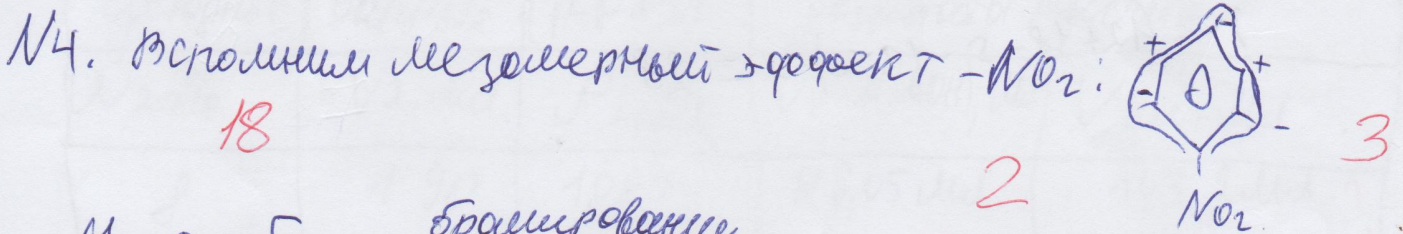 N4. Вспомним мезомерный эффект -NO₂: + + - -
NO₂
18 2 3
бромирование